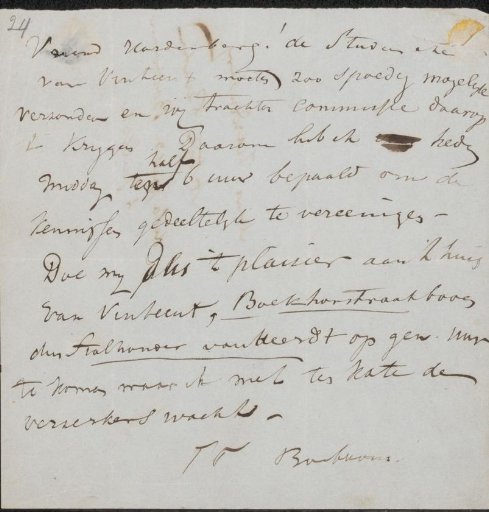 24
Vriend Hardenberg! de Studien &c
van Vinkeert moeten zoo spoedig mogelyk
verzonden en wy trachten commissie daarop
te krygen Daarom heb ik hede
middag half 6 uur bepaald om de
Kennissen gedeeltelyk te vereenigen -
Doe my dus 't plaisier aan 't huis
van Vinkeert, Boekhorstraat boven
den Stalhouder van Heerdt op gen. uur
te komen waar ik met ten Kate de
verzekerd wacht -
TT Bosboom.